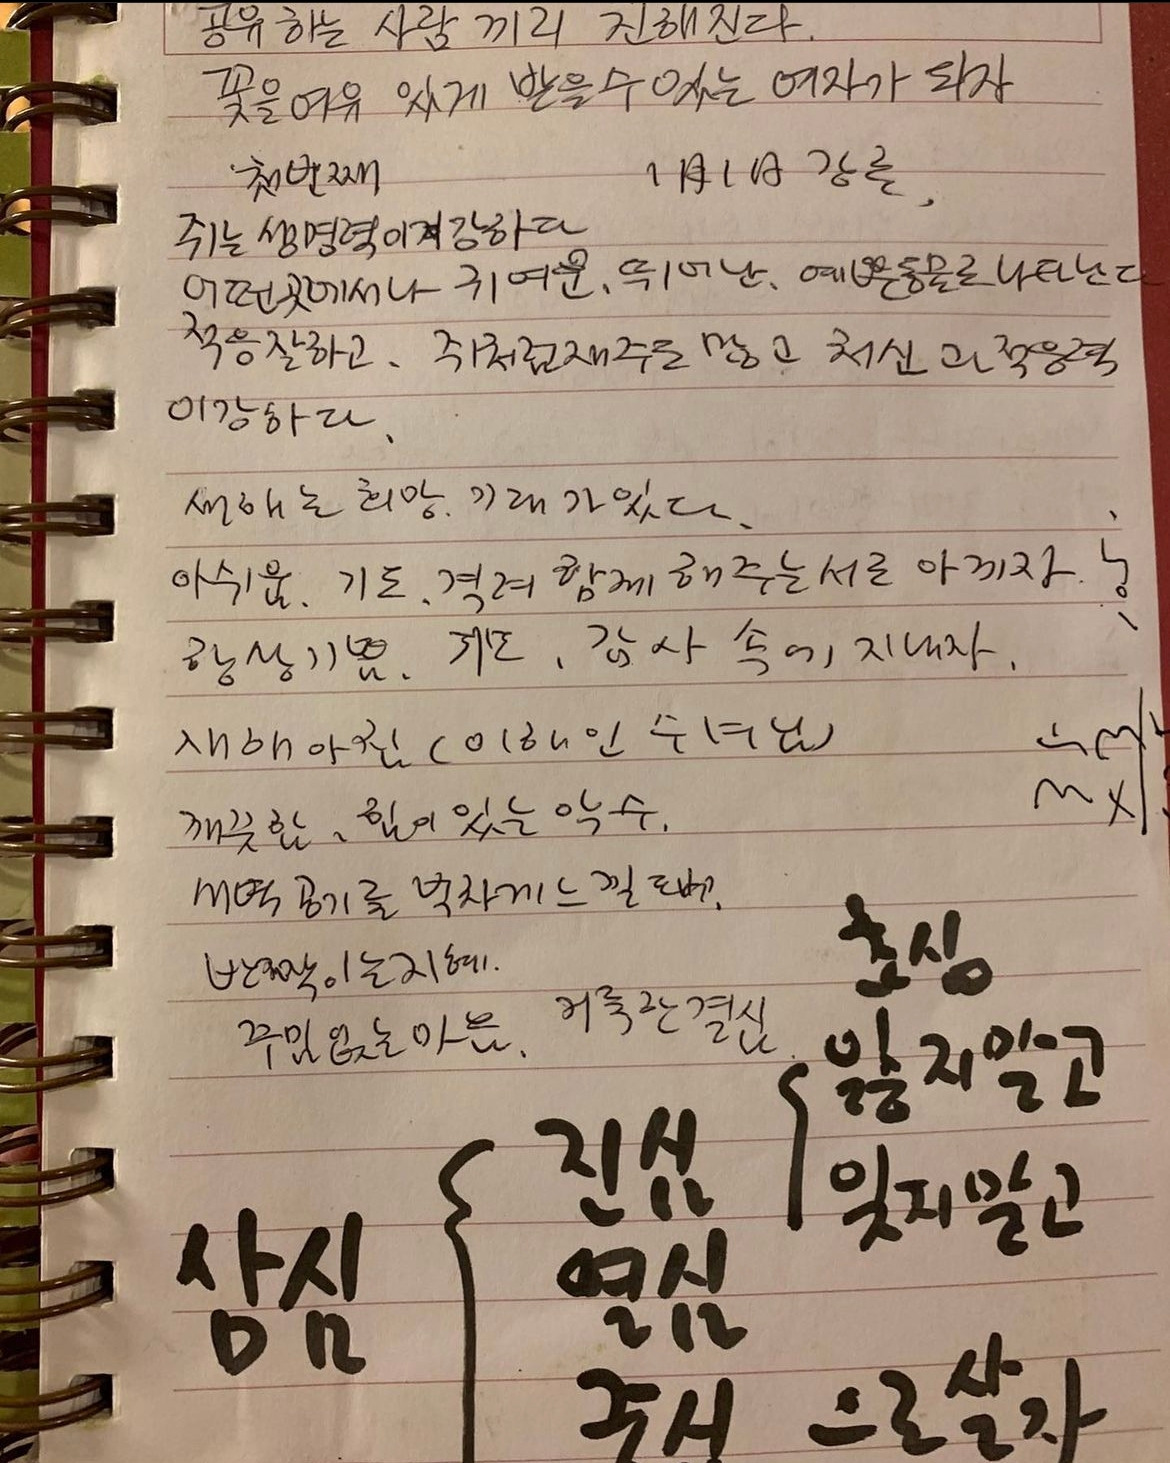 공유하는 사람 끼리 진해진다.
꽃을여유 있게 받을수있는 여자가 되자
첫번째 1月1日 강론,
쥐는 생명력이 강하다
어떤곳에서나 귀여운, 뛰어난, 예쁜동물로 나타난다
적응잘하고, 쥐처럼재주는 많고 처신 과 적응력
이강하다,
새해는 희망, 기대 가있다,
아쉬움, 기도, 격려 함께 해주는서로 아끼자,
항상기쁨, 기도, 감사 속에 지내자,
새해 아침 (이해인 수녀님)
깨끗한, 힘이 있는 악수,
새벽 공기를 벅차게느낄
반짝이는지혜.
꾸밈 없는 마음, 거룩한결심,
초심
잃지말고
잊지말고
삼심
진심
열심
으로살자